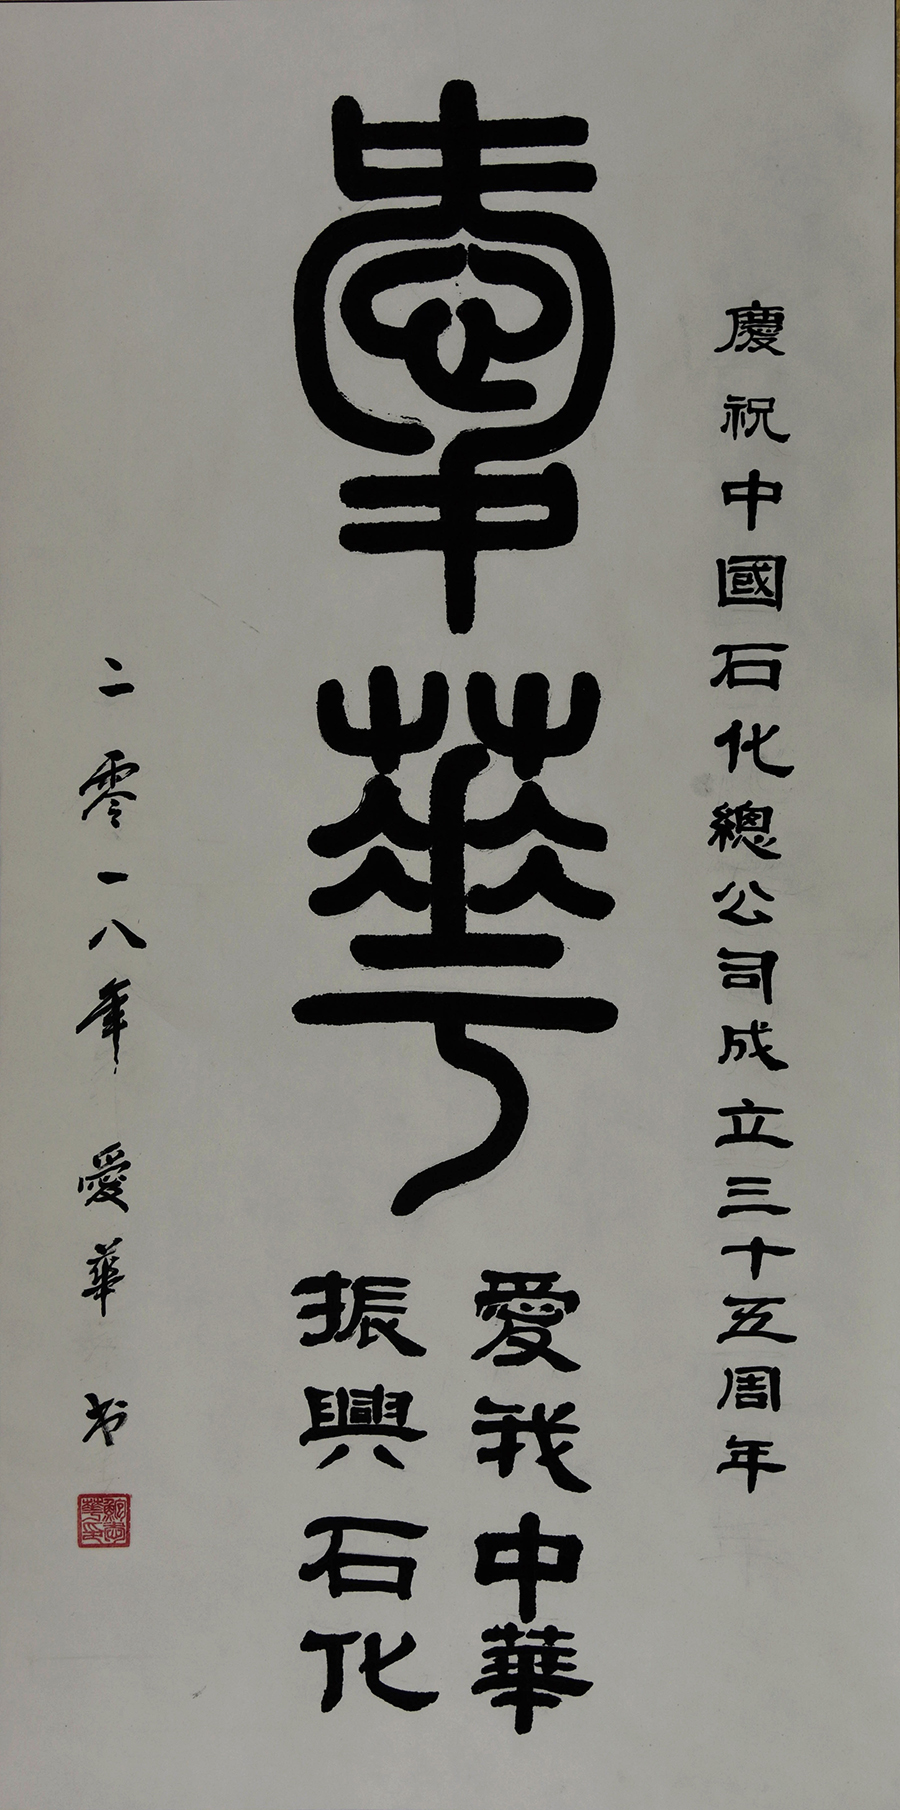 慶祝中國石化總公司成立三十五周年
愛華
愛我中華
振興石化
二零一八年 愛華 书